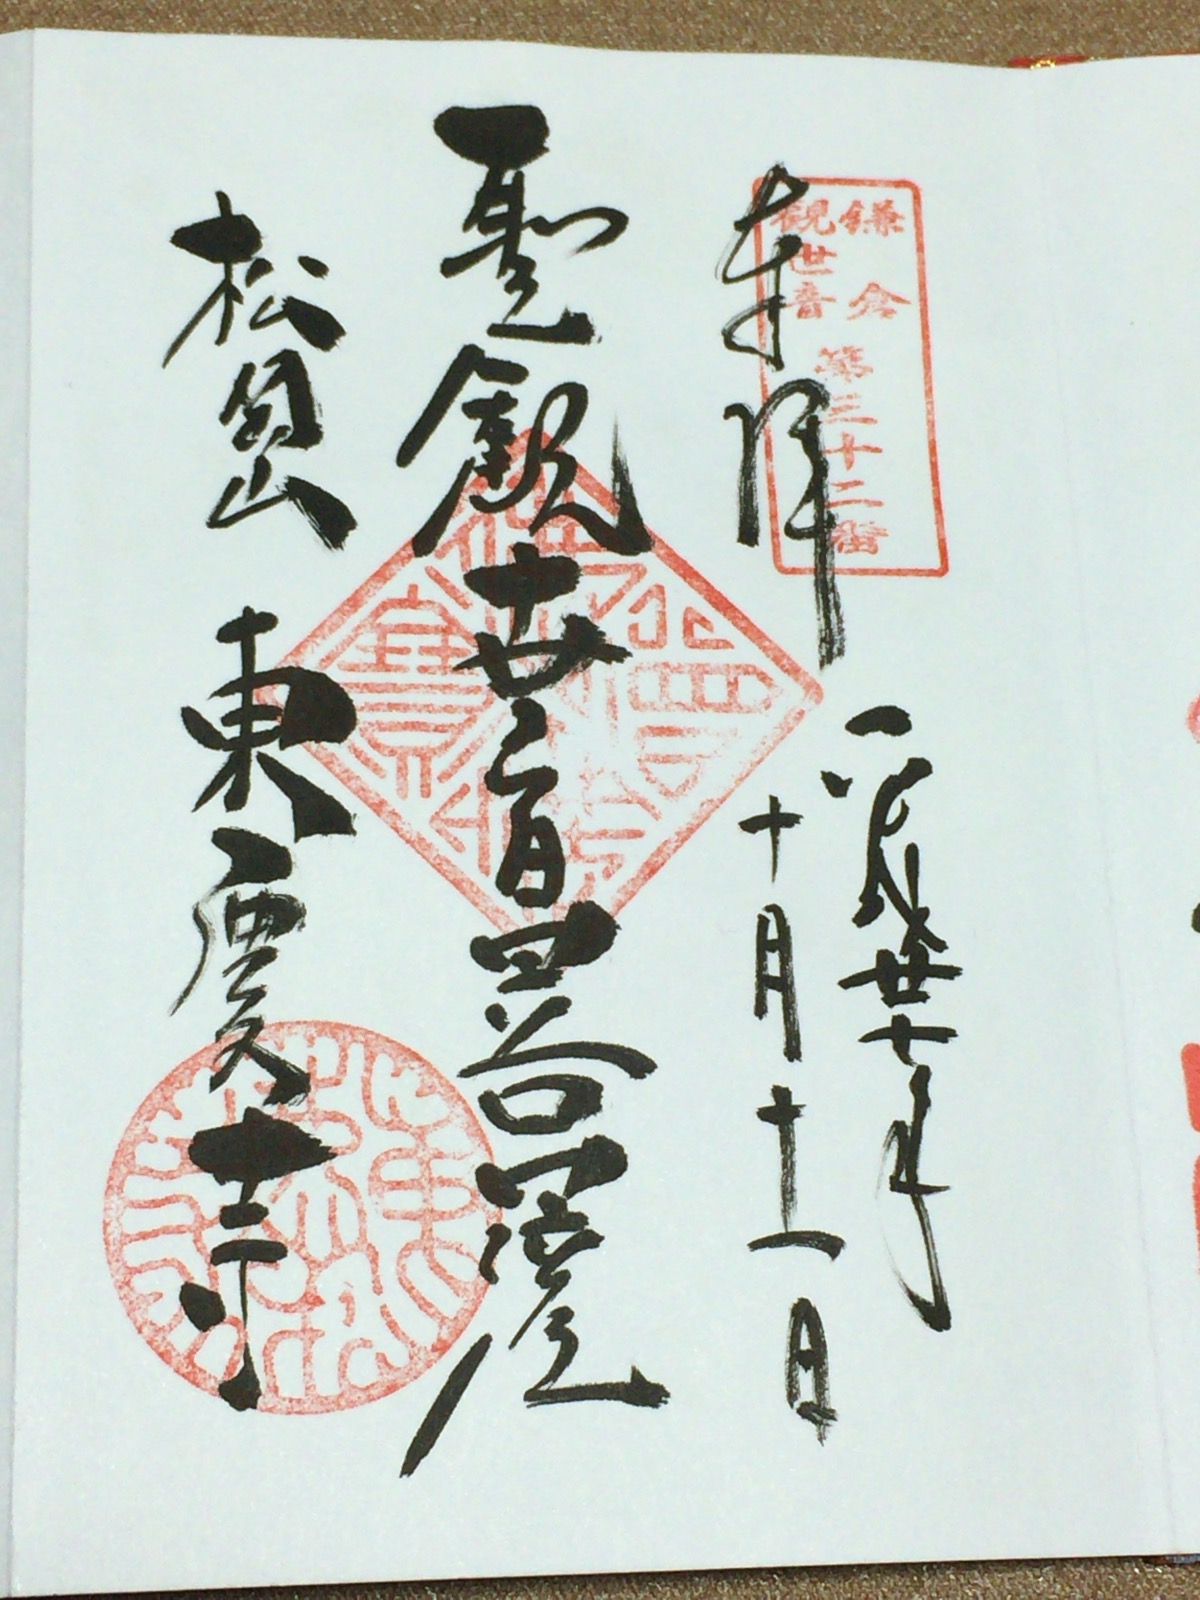 鎌倉
觀世音
第三十二番
奉拝
平成廿七年
十月十一日
聖観世音菩薩
松岡山 東慶寺